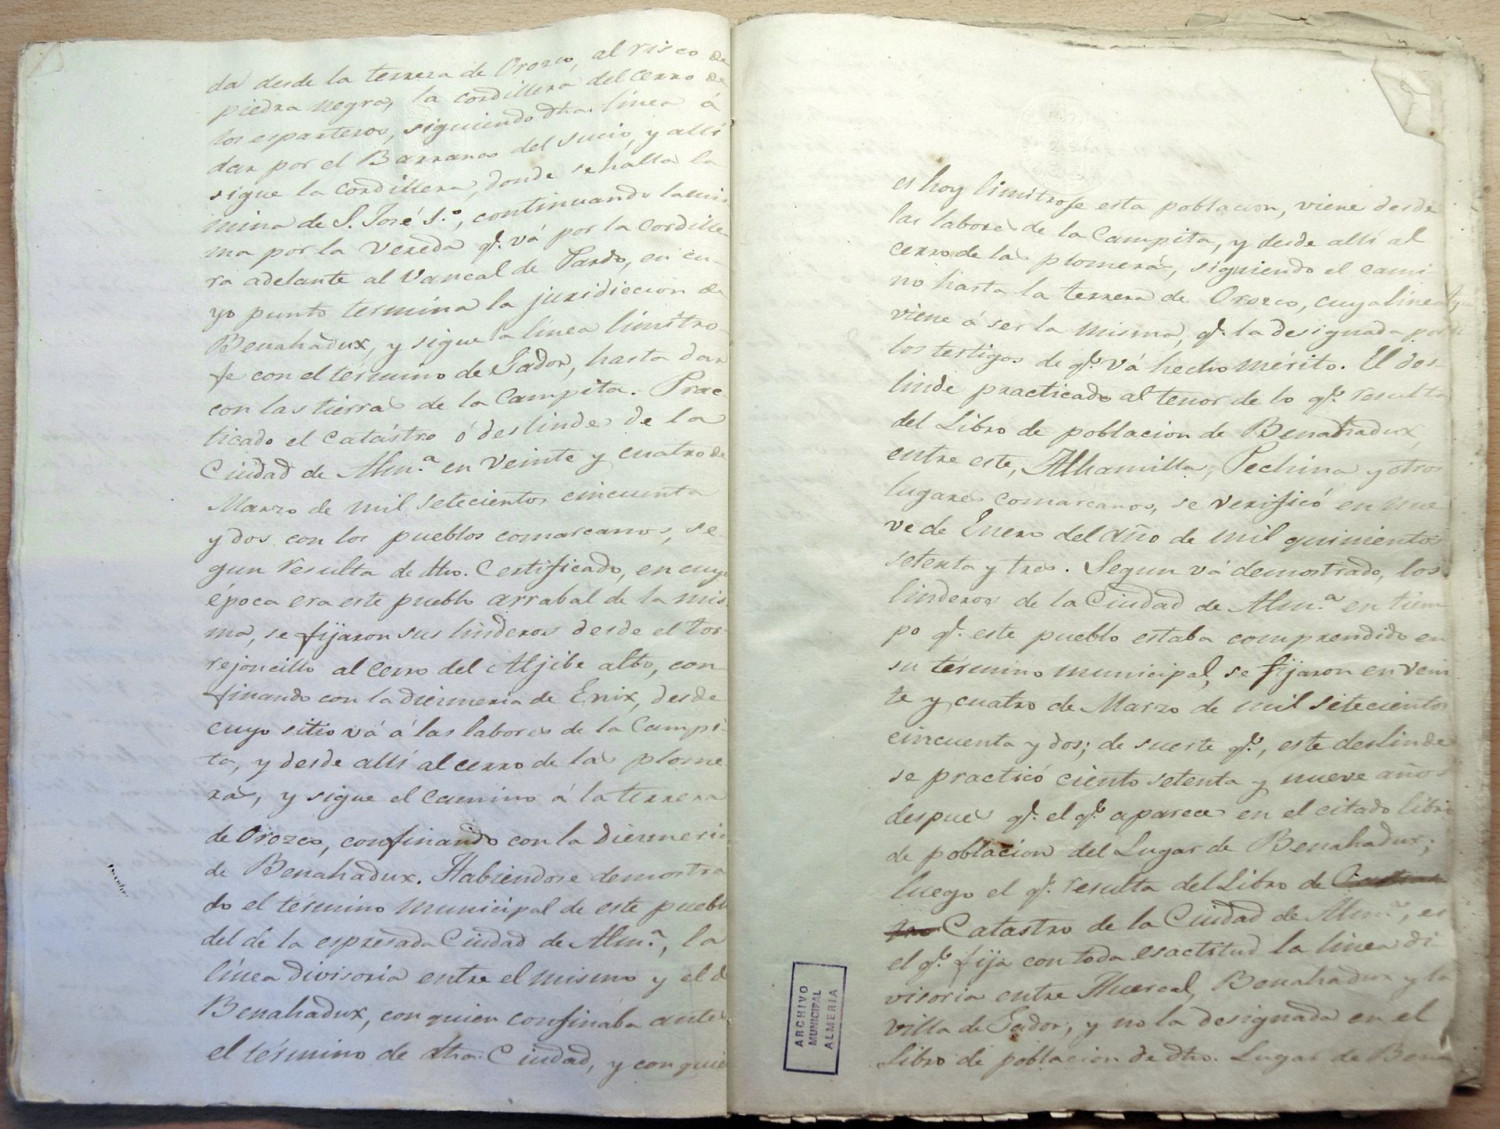 da desde la terrera de Orozco, al risco de
piedra negra, la cordillera del cerro de
los esparteros, siguiendo dha. línea á
dar por el Barranco del sucio, y allí
sigue la cordillera, donde se halla la
mina de S. José S.º, continuando la mis
ma por la Vereda q.e vá por la cordille
ra adelante al vancal de Pardo, en cu-
yo punto termína la juridiccion de
Benahadux, y sigue la línea limitro
fe con el término de Gador, hasta dar
con las tierras de la Campita. Prac
ticado el Catástro ó deslinde de la
Ciudad de Alm.a en veinte y cuatro de
Marzo de mil setecientos cincuenta
y dos con los pueblos comarcanos, se
gun resulta de dho. Certificado, en cuya
época era este pueblo arrabal de la mis
ma, se fijaron sus linderos desde el tor-
rejoncillo al cerro del Aljibe alto, con
finando con la diezmeria de Enix, desde
cuyo sitio vá á las labores de la Campi-
ta, y desde allí al cerro de las plome
ras, y sigue el camino á la terrera
de Orozco, confinando con la diezmeria
de Benahadux. Habiendose demostra
do el término municipal de este pueblo
del de la espresada Ciudad de Alm.a, la
línea divisoria entre el mismo y el de
Benahadux, con quien confinába antes
el término de dha. Ciudad, y con quien
es hoy limitrofe esta poblacion, viene desde
las labores de la Campita, y desde allí al
cerro de las plomeras, siguiendo el cami
no hasta la terrera de Orozco, cuya linea
viene á ser la misma, q.e la designada por
los testigos de q.e vá hecho mérito. El des-
linde practicado al tenor de lo q.e resulta
del Libro de poblacion de Benahadux,
entre este, Alhamilla, Pechina y otros
lugares comarcanos, se verificó en nue
ve de Enero del año de mil quinientos
setenta y tres. Segun vá demostrado, los
linderos de la Ciudad de Alm.a en tiem
po q.e este pueblo estaba comprendido en
su término municipal, se fijaron en vein
te y cuatro de Marzo de mil setecientos
cincuenta y dos; de suerte q.e, este deslinde
se practicó ciento setenta y nueve años
despues q.e el q.e aparece en el citado libro
de poblacion del Lugar de Benahadux;
luego el q.e resulta del Libro de
Catastro de la Ciudad de Alm.a, es
el q.e fija con toda esactitud la línea di
visoria entre Huercal, Benahadux y la
villa de Gador, y no la designada en el
Libro de poblacion de dho. Lugar de Bena
ARCHIVO
MUNICIPAL
ALMERIA